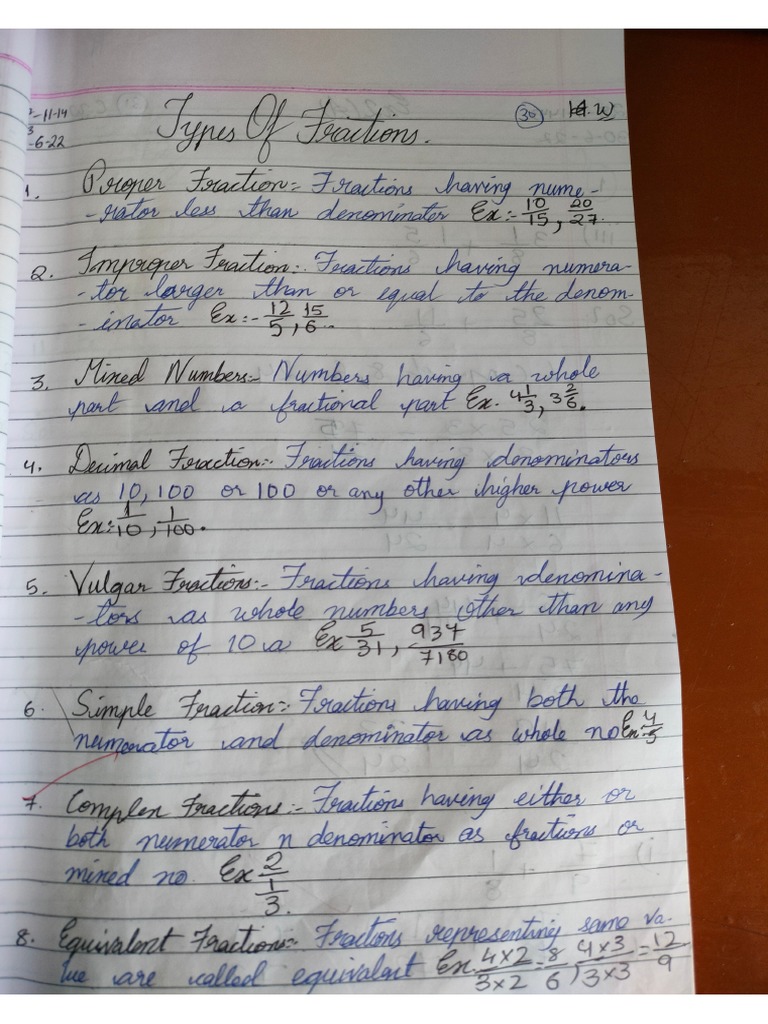 -11-14
-6-22
Types Of Fractions.
30
H.W
1. Proper Fraction:- Fractions having nume-
-rator less than denominater Ex:- 10/15, 20/27.
2. Improper Fraction:- Fractions having numera-
-tor larger than or equal to the denom-
-inator Ex:- 12/5, 15/6..
3. Mixed Numbers:- Numbers having a whole
part and a fractional part Ex. 4 1/3, 3 2/6.
4. Decimal Fraction:- Fractions having denominators
as 10, 100 or 100 or any other higher power
Ex:- 1/10, 1/100.
5. Vulgar Fractions:- Fractions having denomina-
-tors as whole numbers other than any
power of 10 a Ex 5/31, 937/7180
6. Simple Fraction:- Fractions having both the
numerator and denominator as whole no Ex 4/5
7. Complex Fractions:- Fractions having either or
both numerator n denominator as fractions or
mixed no. Ex 2/1/3.
8. Equivalent Fractions:- Fractions representing same va-
lue are called equivalent Ex. 4×2/3×2=8/6, 4×3/3×3=12/9